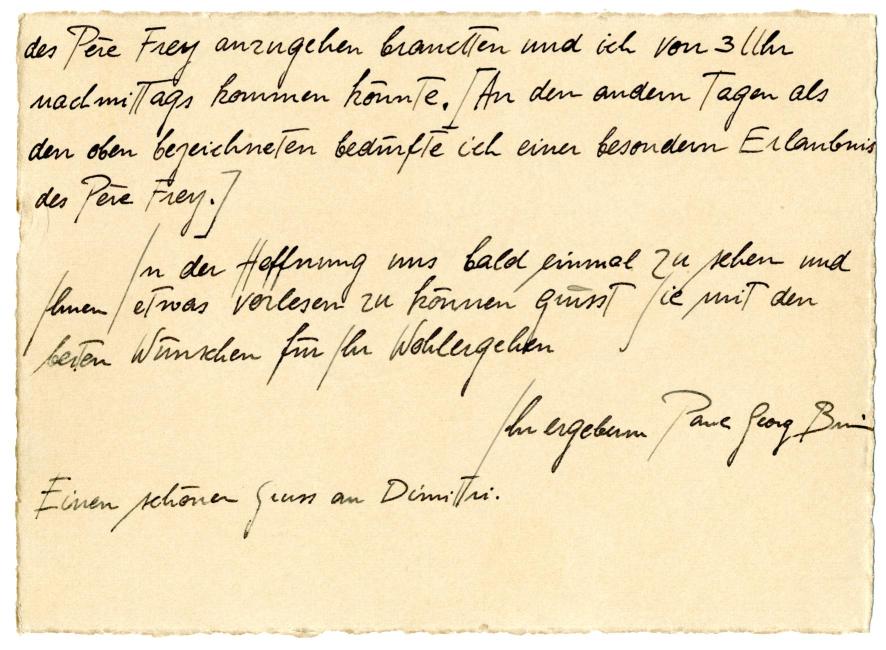 des Père Frey anzugehen brauchten und ich von 3 Uhr
nachmittags kommen könnte. [An den andern Tagen als
den oben bezeichneten bedürfte ich einer besondern Erlaubnis
des Père Frey.]
In der Hoffnung uns bald einmal zu sehen und
Ihnen etwas vorlesen zu können grüsst Sie mit den
besten Wünschen für Ihr Wohlergehen
Ihr ergebener Paul Georg
Einen schönen Gruss an Dimitri.